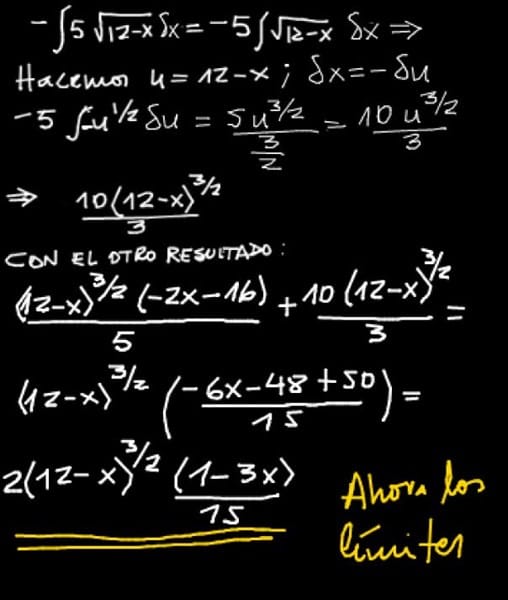 -∫5√12-x δx = -5∫√12-x δx ⇒
Hacemos u = 12-x ; δx = -δu
-5 ∫-u^1/2 δu = 5u^3/2 / 3/2 = 10u^3/2 / 3
⇒ 10(12-x)^3/2 / 3
CON EL OTRO RESULTADO:
(12-x)^3/2 (-2x-16) / 5 + 10(12-x)^3/2 / 3 =
(12-x)^3/2 (-6x-48+50 / 15) =
2(12-x)^3/2 (1-3x) / 15
Ahora los
límites